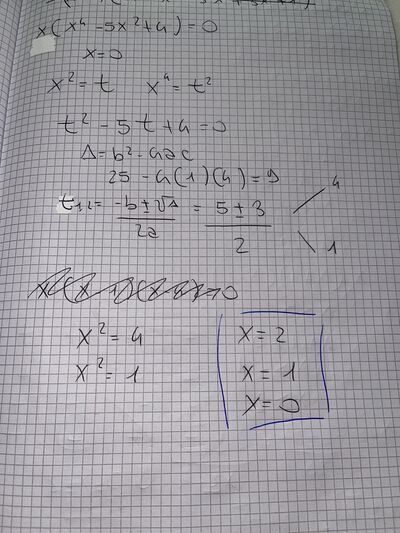 x(x⁴-5x²+4)=0
x=0
x²=t x⁴=t²
t²-5t+4=0
Δ=b²-4ac
25-4(1)(4)=9
t₁,₂= -b±√Δ / 2a = 5±3 / 2 4
1
x²=4 x=2
x²=1 x=1
x=0